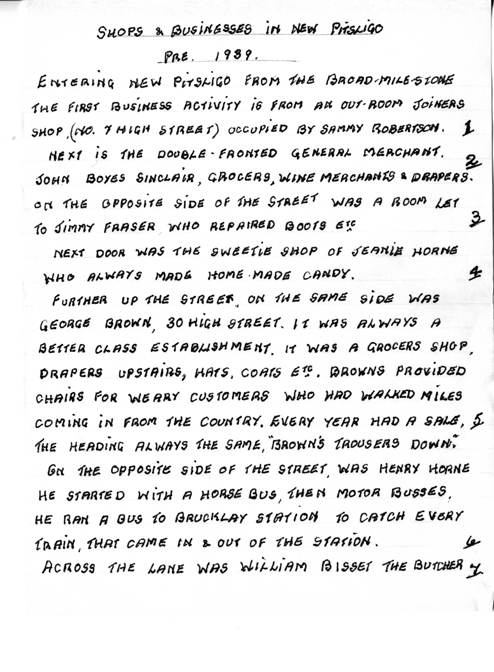 SHOPS & BUSINESSES IN NEW PITSLIGO
PRE. 1939.
ENTERING NEW PITSLIGO FROM THE BROAD-MILE-STONE
THE FIRST BUSINESS ACTIVITY IS FROM AN OUT-ROOM JOINERS
SHOP, (NO. 7 HIGH STREET) OCCUPIED BY SAMMY ROBERTSON. 1
NEXT IS THE DOUBLE-FRONTED GENERAL MERCHANT. 2
JOHN BOYES SINCLAIR, GROCERS, WINE MERCHANTS & DRAPERS.
ON THE OPPOSITE SIDE OF THE STREET WAS A ROOM LET
TO JIMMY FRASER WHO REPAIRED BOOTS ETC 3
NEXT DOOR WAS THE SWEETIE SHOP OF JEANIE HORNE
WHO ALWAYS MADE HOME-MADE CANDY. 4
FURTHER UP THE STREET, ON THE SAME SIDE WAS
GEORGE BROWN, 30 HIGH STREET. IT WAS ALWAYS A
BETTER CLASS ESTABLISHMENT. IT WAS A GROCERS SHOP,
DRAPERS UPSTAIRS, HATS, COATS ETC. BROWNS PROVIDED
CHAIRS FOR WEARY CUSTOMERS WHO HAD WALKED MILES
COMING IN FROM THE COUNTRY. EVERY YEAR HAD A SALE, 5
THE HEADING ALWAYS THE SAME, "BROWN'S TROUSERS DOWN."
ON THE OPPOSITE SIDE OF THE STREET WAS HENRY HORNE
HE STARTED WITH A HORSE BUS, THEN MOTOR BUSSES,
HE RAN A BUS TO BRUCKLAY STATION TO CATCH EVERY
TRAIN, THAT CAME IN & OUT OF THE STATION. 6
ACROSS THE LANE WAS WILLIAM BISSET THE BUTCHER 7